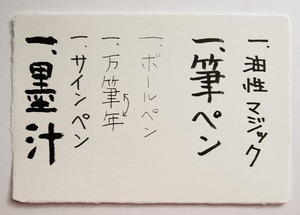 一、油性マジック
一、筆ペン
一、ボールペン
一、万筆年
一、サインペン
一、墨汁